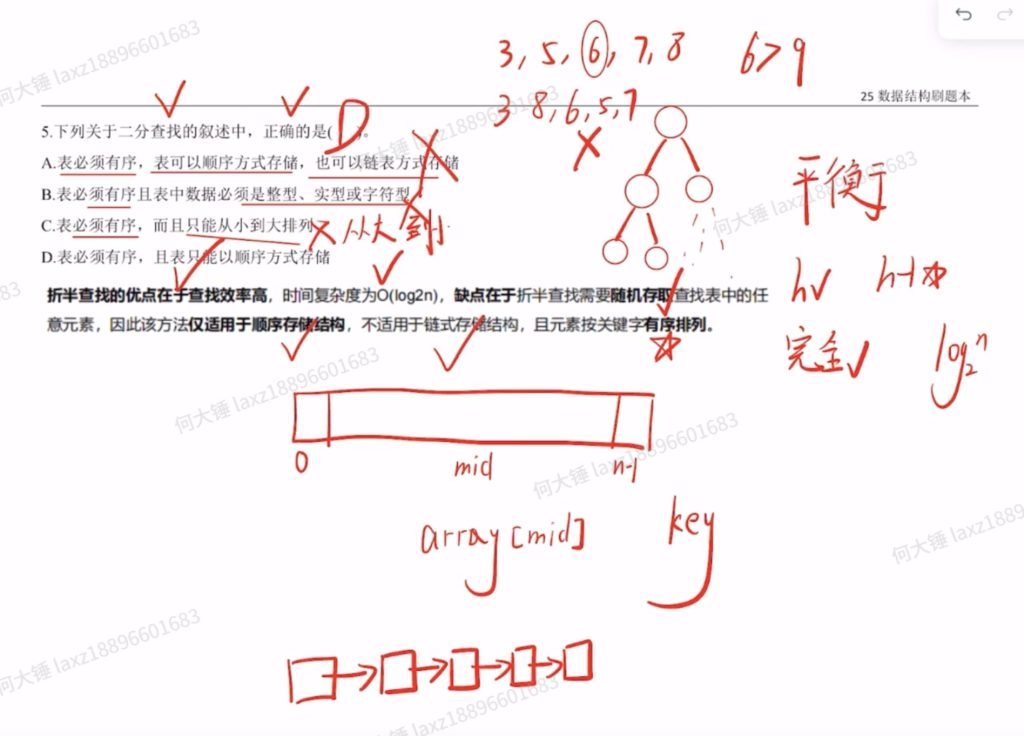 3, 5, 6, 7, 8 6>9
25 数据结构刷题本
3 8, 6, 5, 7
5.下列关于二分查找的叙述中，正确的是( D )。
A.表必须有序，表可以顺序方式存储，也可以链表方式存储
B.表必须有序且表中数据必须是整型、实型或字符型
平衡
C.表必须有序，而且只能从小到大排列 从大到小
D.表必须有序，且表只能以顺序方式存储
h h-1
折半查找的优点在于查找效率高，时间复杂度为O(log2n)，缺点在于折半查找需要随机存取查找表中的任
意元素，因此该方法仅适用于顺序存储结构，不适用于链式存储结构，且元素按关键字有序排列。
完全 log2n
0 mid n-1
array[mid] key
何大锤 laxz18896601683
何大锤 laxz18896601683
何大锤 laxz18896601683
何大锤 laxz18896601683
何大锤 laxz18896601683
何大锤 laxz18896601683